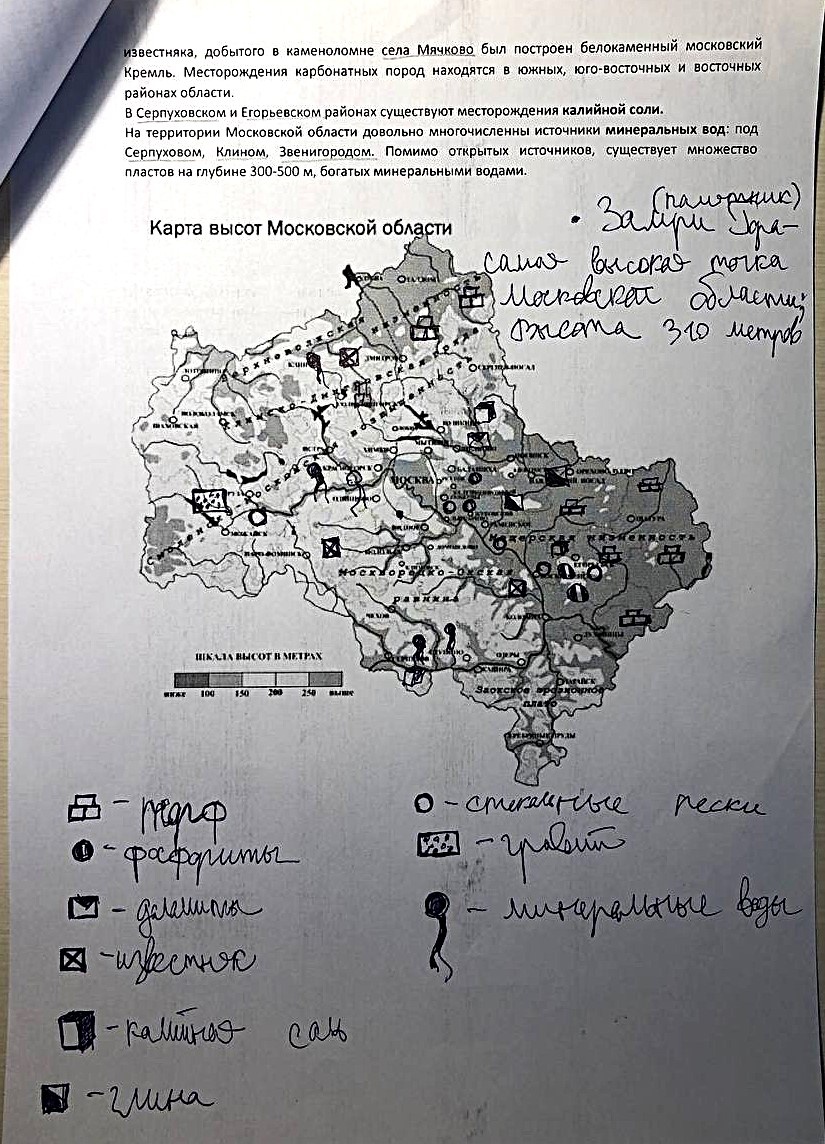 известняка, добытого в каменоломне села Мячково был построен белокаменный московский
Кремль. Месторождения карбонатных пород находятся в южных, юго-восточных и восточных
районах области.
В Серпуховском и Егорьевском районах существуют месторождения калийной соли.
На территории Московской области довольно многочисленны источники минеральных вод: под
Серпуховом, Клином, Звенигородом. Помимо открытых источников, существует множество
пластов на глубине 300-500 м, богатых минеральными водами.
Карта высот Московской области
самая высокая точка
Московской области;
высота 310 метров
Верхневолжская низменность
Клинско-Дмитровская гряда
Смоленско-Московская возвышенность
КЛИН
ДМИТРОВ
ШАХОВСКАЯ
ХИМКИ
КРАСНОГОРСК
МОСКВА
БАЛАШИХА
МОЖАЙСК
НАРО-ФОМИНСК
ШАТУРА
Мещерская низменность
Москворецко-Окская
равнина
ЧЕХОВ
КОЛОМНА
ОЗЕРЫ
КАШИРА
ЗАРАЙСК
Заокское эрозионное
плато
СЕРЕБРЯНЫЕ ПРУДЫ
ШКАЛА ВЫСОТ В МЕТРАХ
ниже 100 150 200 250 выше
- торф
- фосфориты
- доломиты
- известняк
- калийная соль
- глина
- стекольные пески
- гравий
- минеральные воды